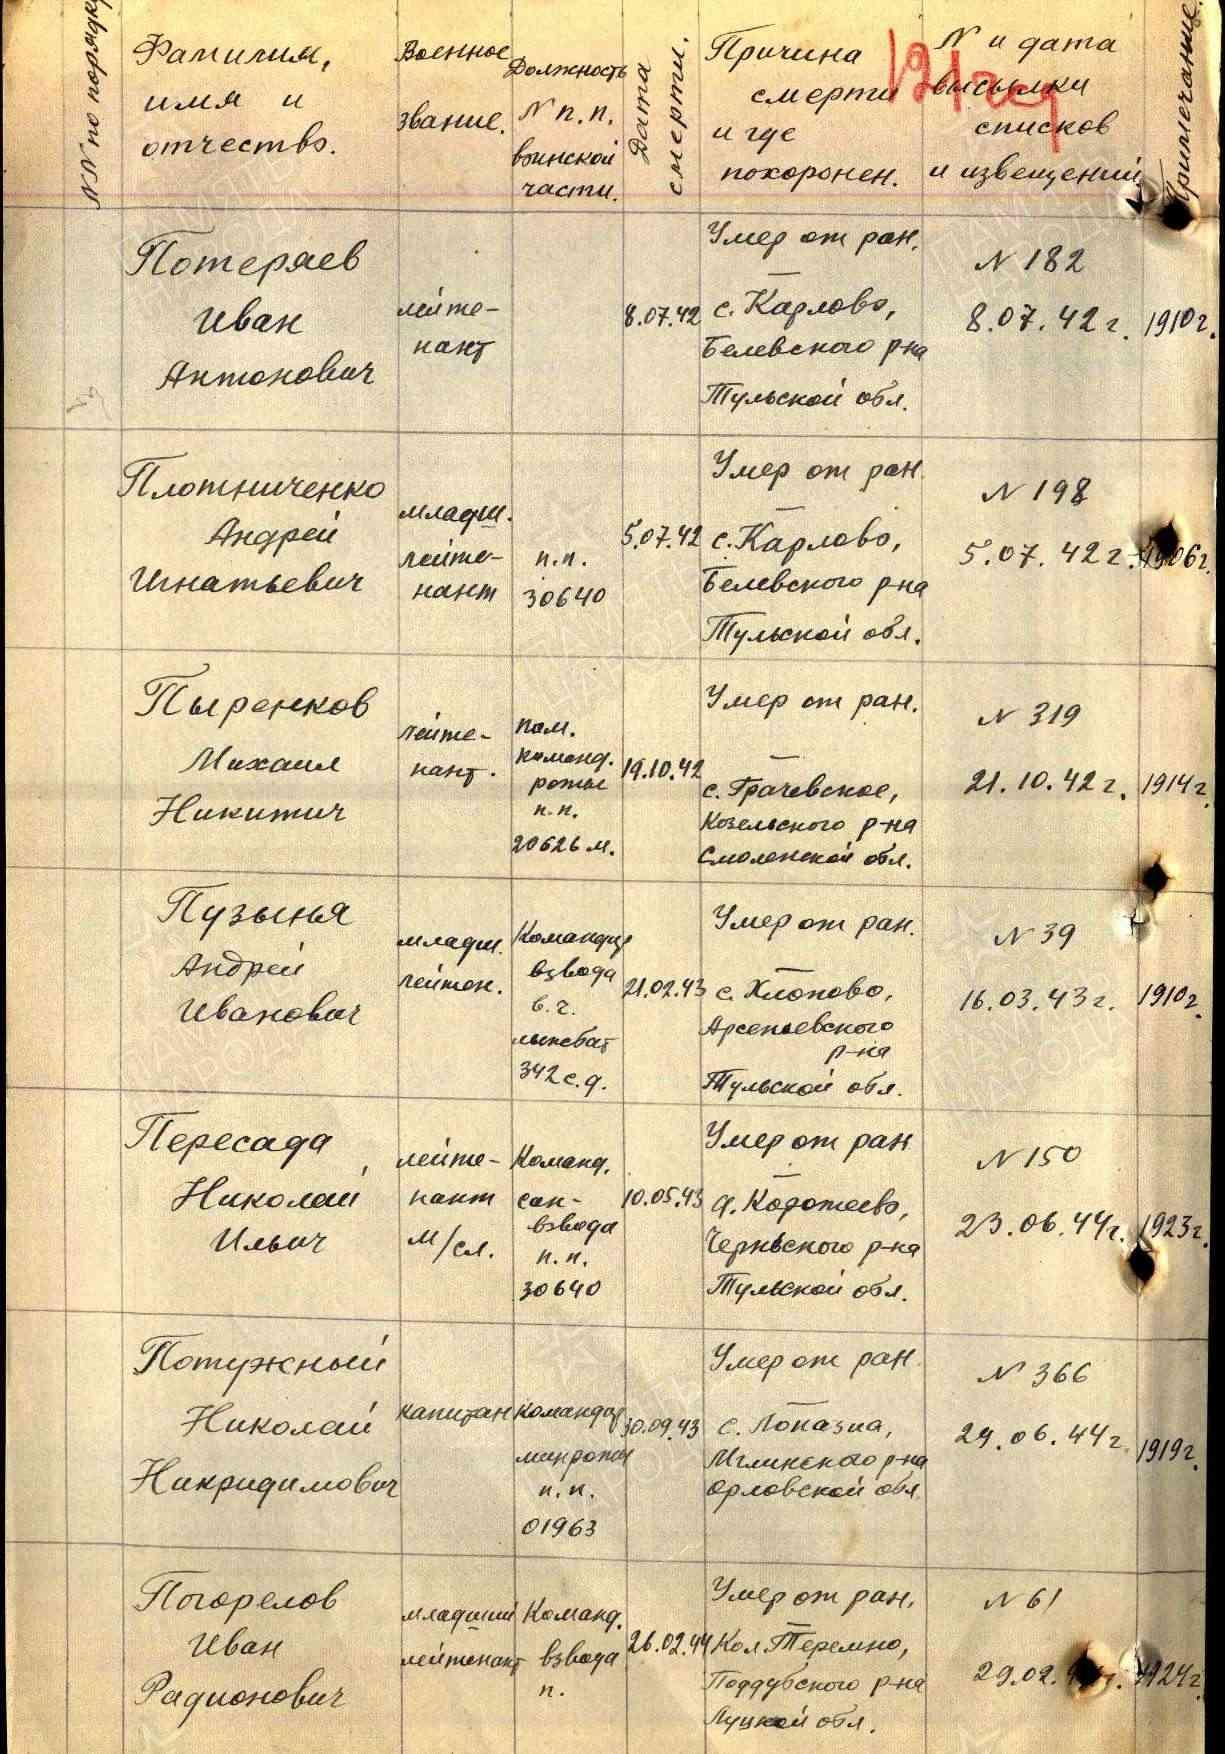 NN по порядку
Фамилия,
имя и
отчество.
Военное
звание.
Должность
N п.п.
воинской
части.
Дата
смерти.
Причина
смерти
и где
похоронен.
N и дата
высылки
списков
и извещений.
Примечание.
Потеряев
Иван
Антонович
лейте-
нант
8.07.42
Умер от ран.
с. Карлово,
Белевского р-на
Тульской обл.
N 182
8.07.42 г.
1910г.
Плотниченко
Андрей
Игнатьевич
младш.
лейте-
нант
п.п.
30640
5.07.42
Умер от ран.
с. Карлово,
Белевского р-на
Тульской обл.
N 198
5.07.42 г.
1906г.
Пыренков
Михаил
Никитич
лейте-
нант.
пом.
команд.
роты
п.п.
20626 м.
19.10.42
Умер от ран.
с. Грачевское,
Козельского р-на
Смоленской обл.
N 319
21.10.42 г.
1914г.
Пузынья
Андрей
Иванович
младш.
лейтен.
Командир
взвода
в.ч.
лыжбат
342 с.д.
21.02.43
Умер от ран.
с. Хлопово,
Арсеньевского
р-на
Тульской обл.
N 39
16.03.43 г.
1910г.
Пересада
Николай
Ильич
лейте-
нант
м/сл.
Команд.
сан-
взвода
п.п.
30640
10.05.43
Умер от ран
д. Коротеево,
Черньского р-на
Тульской обл.
N 150
23.06.44г.
1923г.
Потужный
Николай
Никридимович
капитан
командир
минроты
п.п.
01963
30.09.43
Умер от ран.
с. Лопазна,
Мглинского р-на
Орловской обл.
N 366
29.06.44 г.
1919г.
Погорелов
Иван
Радионович
младший
лейтенант
Команд.
взвода
п.
26.02.44
Умер от ран.
Кол. Теремно,
Поддубского р-на
Луцкой обл.
N 61
29.02.
1924г.